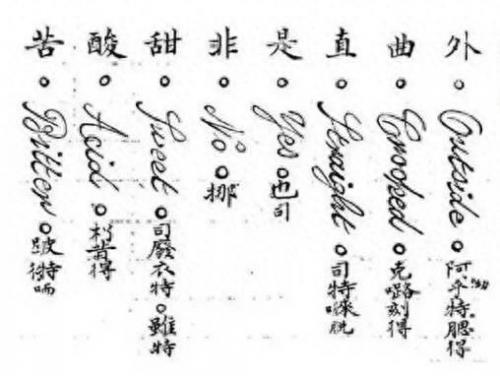 外 ○ Outside ○ 阿乎特腮得
曲 ○ Crooped ○ 克嚕刻得
直 ○ Straight ○ 司特脫
是 ○ Yes ○ 也司
非 ○ No ○ 挪
甜 ○ Sweet ○ 司廢衣特 ○ 雖特
酸 ○ Acid ○ 昔得
苦 ○ Bitter ○ 特